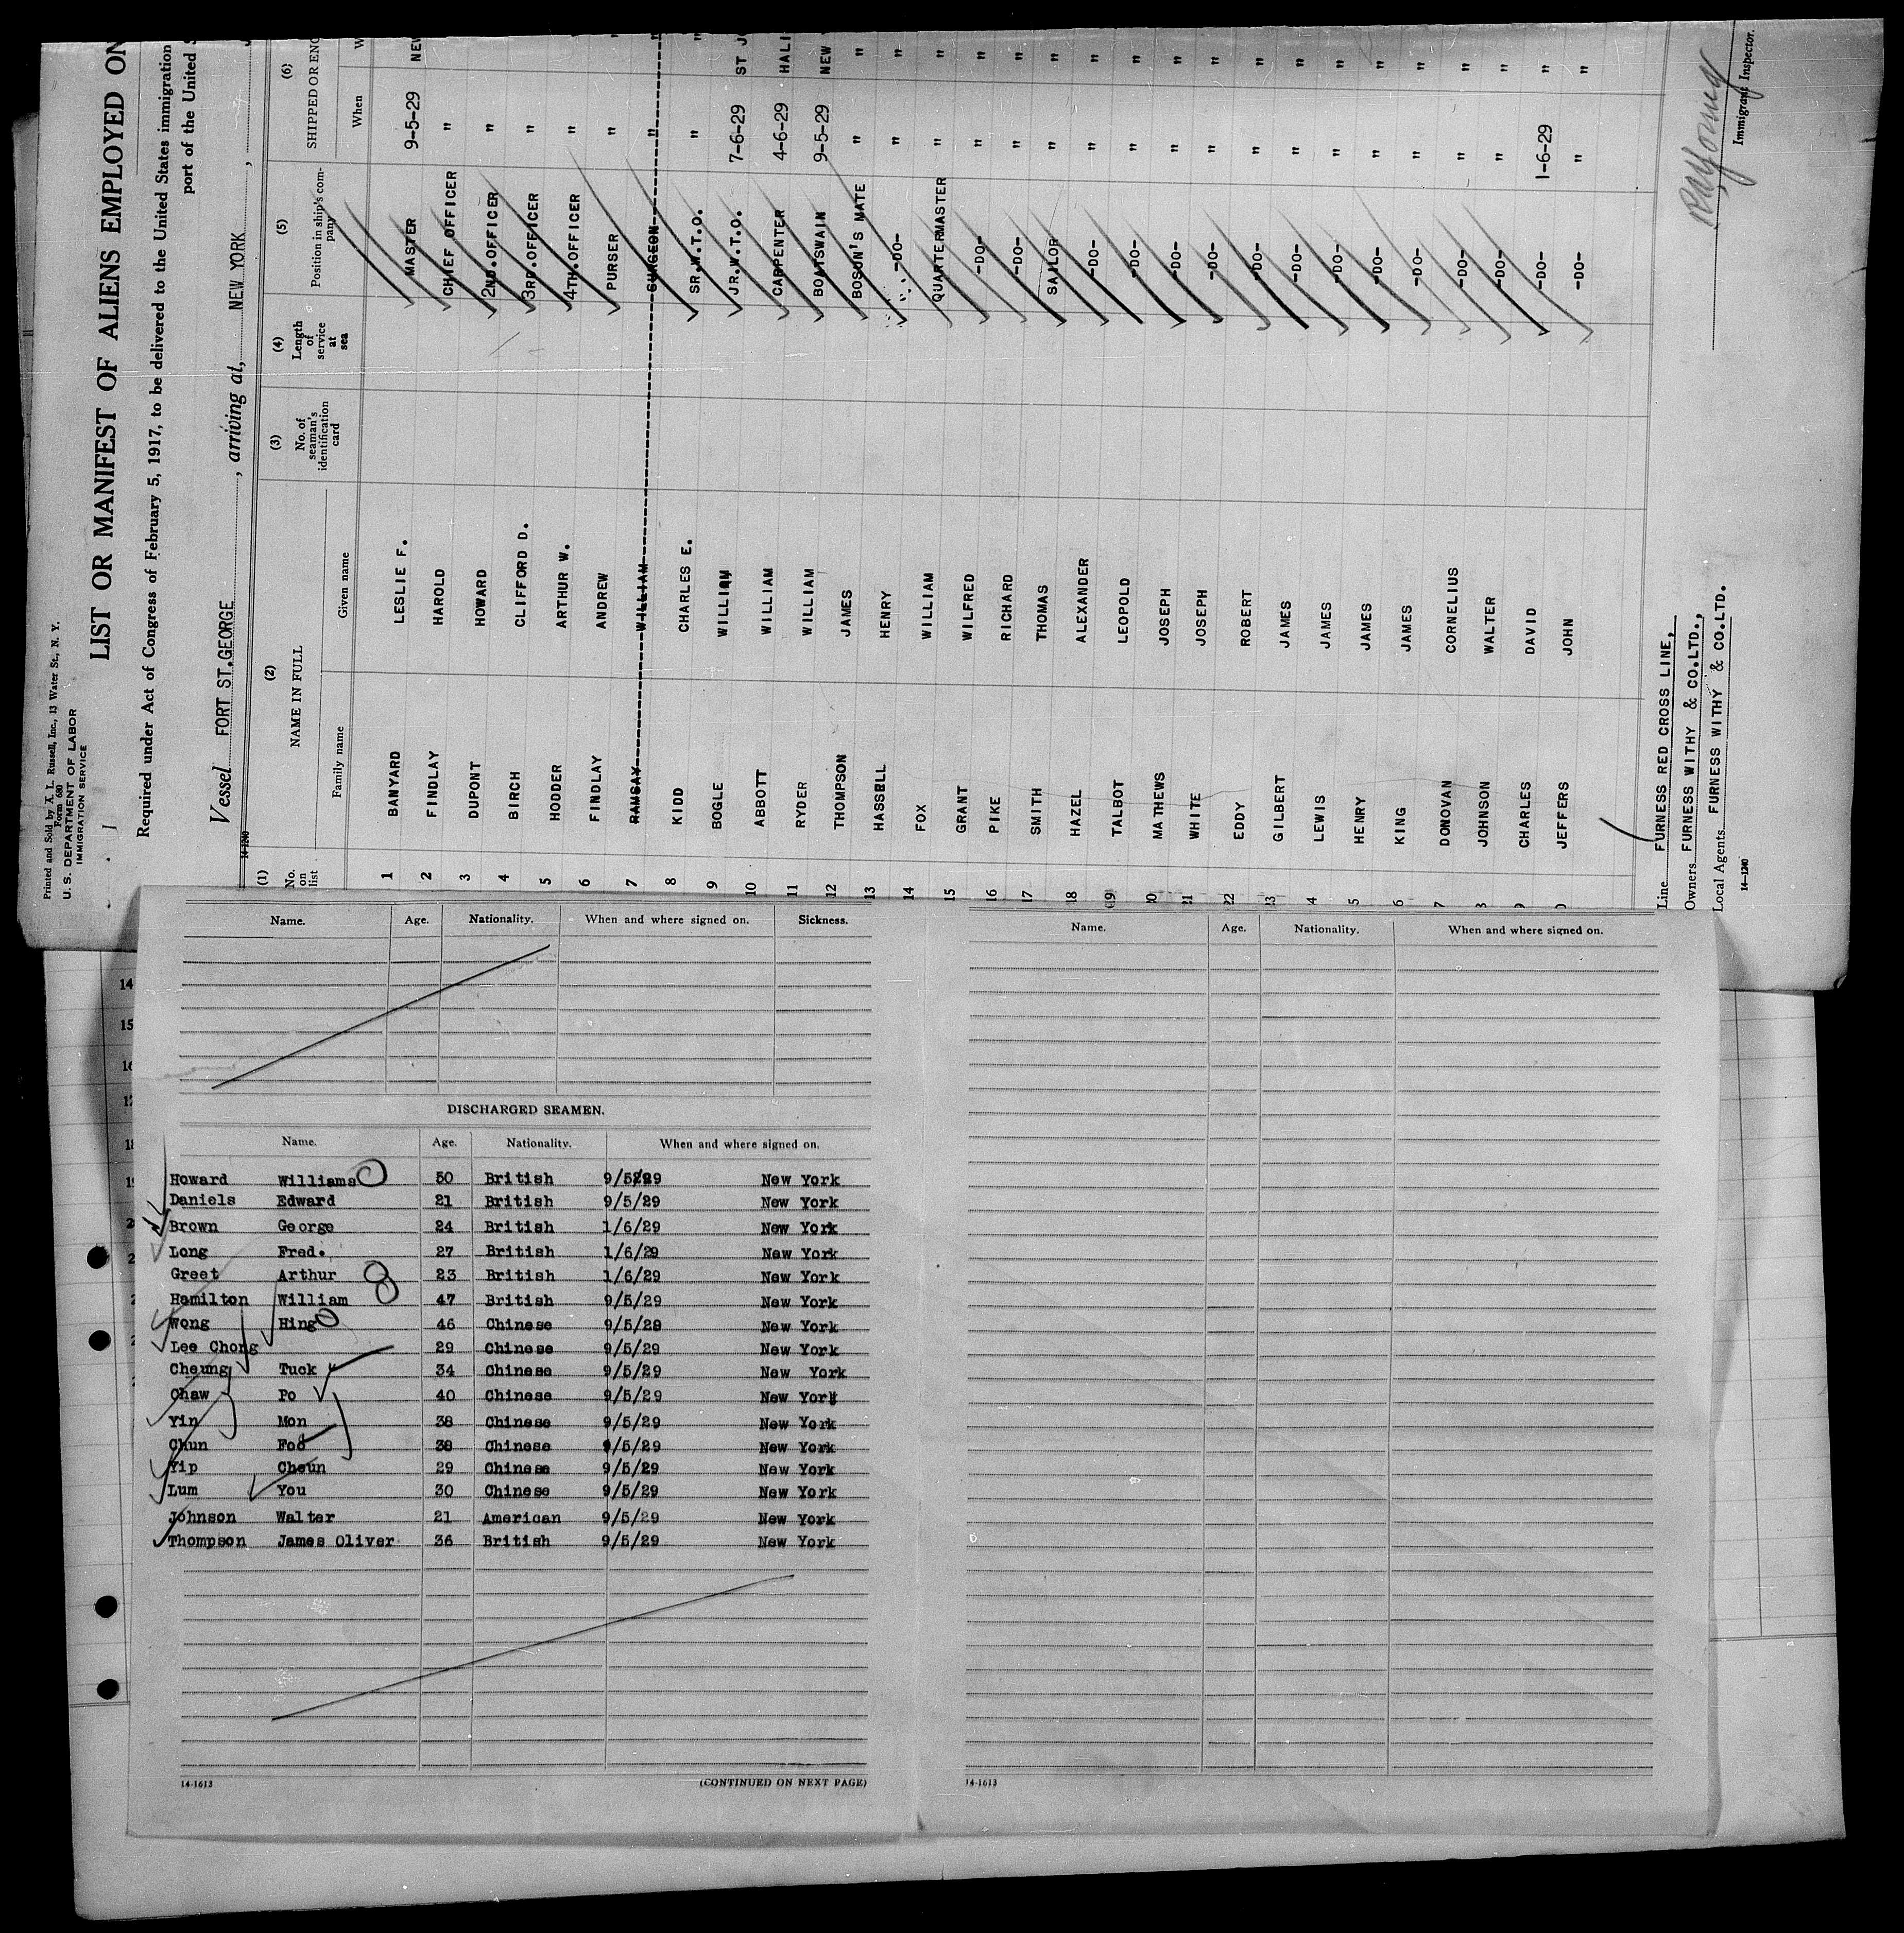 Printed and Sold by A. L. Russell, Inc., 13 Water St., N. Y.
Form 680
U. S. DEPARTMENT OF LABOR
IMMIGRATION SERVICE
LIST OR MANIFEST OF ALIENS EMPLOYED ON
Required under Act of Congress of February 5, 1917, to be delivered to the United States immigration
port of the United
Vessel FORT ST.GEORGE, arriving at, NEW YORK,
14-1240
(1) (2) (3) (4) (5) (6)
No. on list NAME IN FULL No. of seaman's identification card Length of service at sea Position in ship's company SHIPPED OR ENG
Family name Given name When W
1 BANYARD LESLIE F. MASTER 9-5-29 NEW
2 FINDLAY HAROLD CHIEF OFFICER " "
3 DUPONT HOWARD 2ND.OFFICER " "
4 BIRCH CLIFFORD D. 3RD.OFFICER " "
5 HODDER ARTHUR W. 4TH.OFFICER " "
6 FINDLAY ANDREW PURSER " "
7 RAMSAY WILLIAM SURGEON " "
8 KIDD CHARLES E. SR.W.T.O. " "
9 BOGLE WILLIAM JR.W.T.O. 7-6-29 ST J
10 ABBOTT WILLIAM CARPENTER 4-6-29 HALI
11 RYDER WILLIAM BOATSWAIN 9-5-29 NEW
12 THOMPSON JAMES BOSON'S MATE " "
13 HASSELL HENRY -DO- " "
14 FOX WILLIAM QUARTERMASTER " "
15 GRANT WILFRED -DO- " "
16 PIKE RICHARD -DO- " "
17 SMITH THOMAS SAILOR " "
18 HAZEL ALEXANDER -DO- " "
19 TALBOT LEOPOLD -DO- " "
20 MATHEWS JOSEPH -DO- " "
21 WHITE JOSEPH -DO- " "
22 EDDY ROBERT -DO- " "
23 GILBERT JAMES -DO- " "
4 LEWIS JAMES -DO- " "
5 HENRY JAMES -DO- " "
6 KING JAMES -DO- " "
7 DONOVAN CORNELIUS -DO- " "
8 JOHNSON WALTER -DO- " "
9 CHARLES DAVID -DO- 1-6-29 "
0 JEFFERS JOHN -DO- " "
Line FURNESS RED CROSS LINE,
Owners FURNESS WITHY & CO.LTD.,
Local Agents FURNESS WITHY & CO.LTD.
Immigrant Inspector.
14-1240
Name. Age. Nationality. When and where signed on. Sickness.
DISCHARGED SEAMEN.
Name. Age. Nationality. When and where signed on.
Howard Williams 50 British 9/5/29 New York
Daniels Edward 21 British 9/5/29 New York
Brown George 24 British 1/6/29 New York
Long Fred. 27 British 1/6/29 New York
Greet Arthur 23 British 1/6/29 New York
Hamilton William 47 British 9/5/29 New York
Wong Hing 46 Chinese 9/5/29 New York
Lee Chong 29 Chinese 9/5/29 New York
Cheung Tuck 34 Chinese 9/5/29 New York
Chaw Po 40 Chinese 9/5/29 New York
Yin Mon 38 Chinese 9/5/29 New York
Chun Foo 38 Chinese 9/5/29 New York
Yip Cheun 29 Chinese 9/5/29 New York
Lum You 30 Chinese 9/5/29 New York
Johnson Walter 21 American 9/5/29 New York
Thompson James Oliver 36 British 9/5/29 New York
14-1613 (CONTINUED ON NEXT PAGE)
Name. Age. Nationality. When and where signed on.
14-1613
14
15
16
17
18